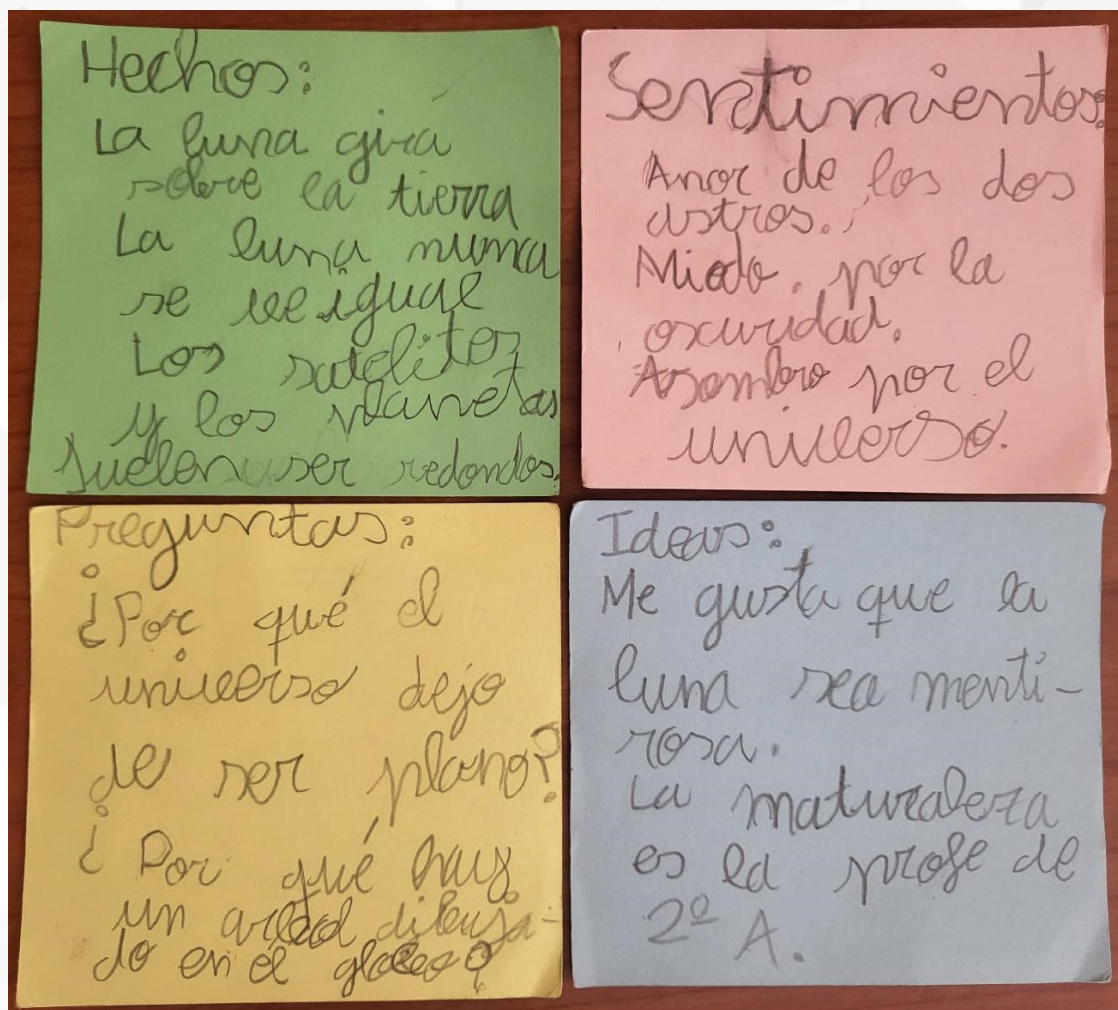 Hechos:
La luna gira
sobre la tierra
La luna nunca
se ve igual
Los satelites
y los planetas
suelen ser redondos.
Sentimientos:
Amor de los dos
astros.
Miedo. por la
oscuridad.
Asombro por el
universo.
Preguntas:
¿Por qué el
universo dejo
de ser plano?
¿Por qué hay
un arbol dibuja-
do en el globo?
Ideas:
Me gusta que la
luna sea menti-
rosa.
La naturaleza
es la profe de
2º A.